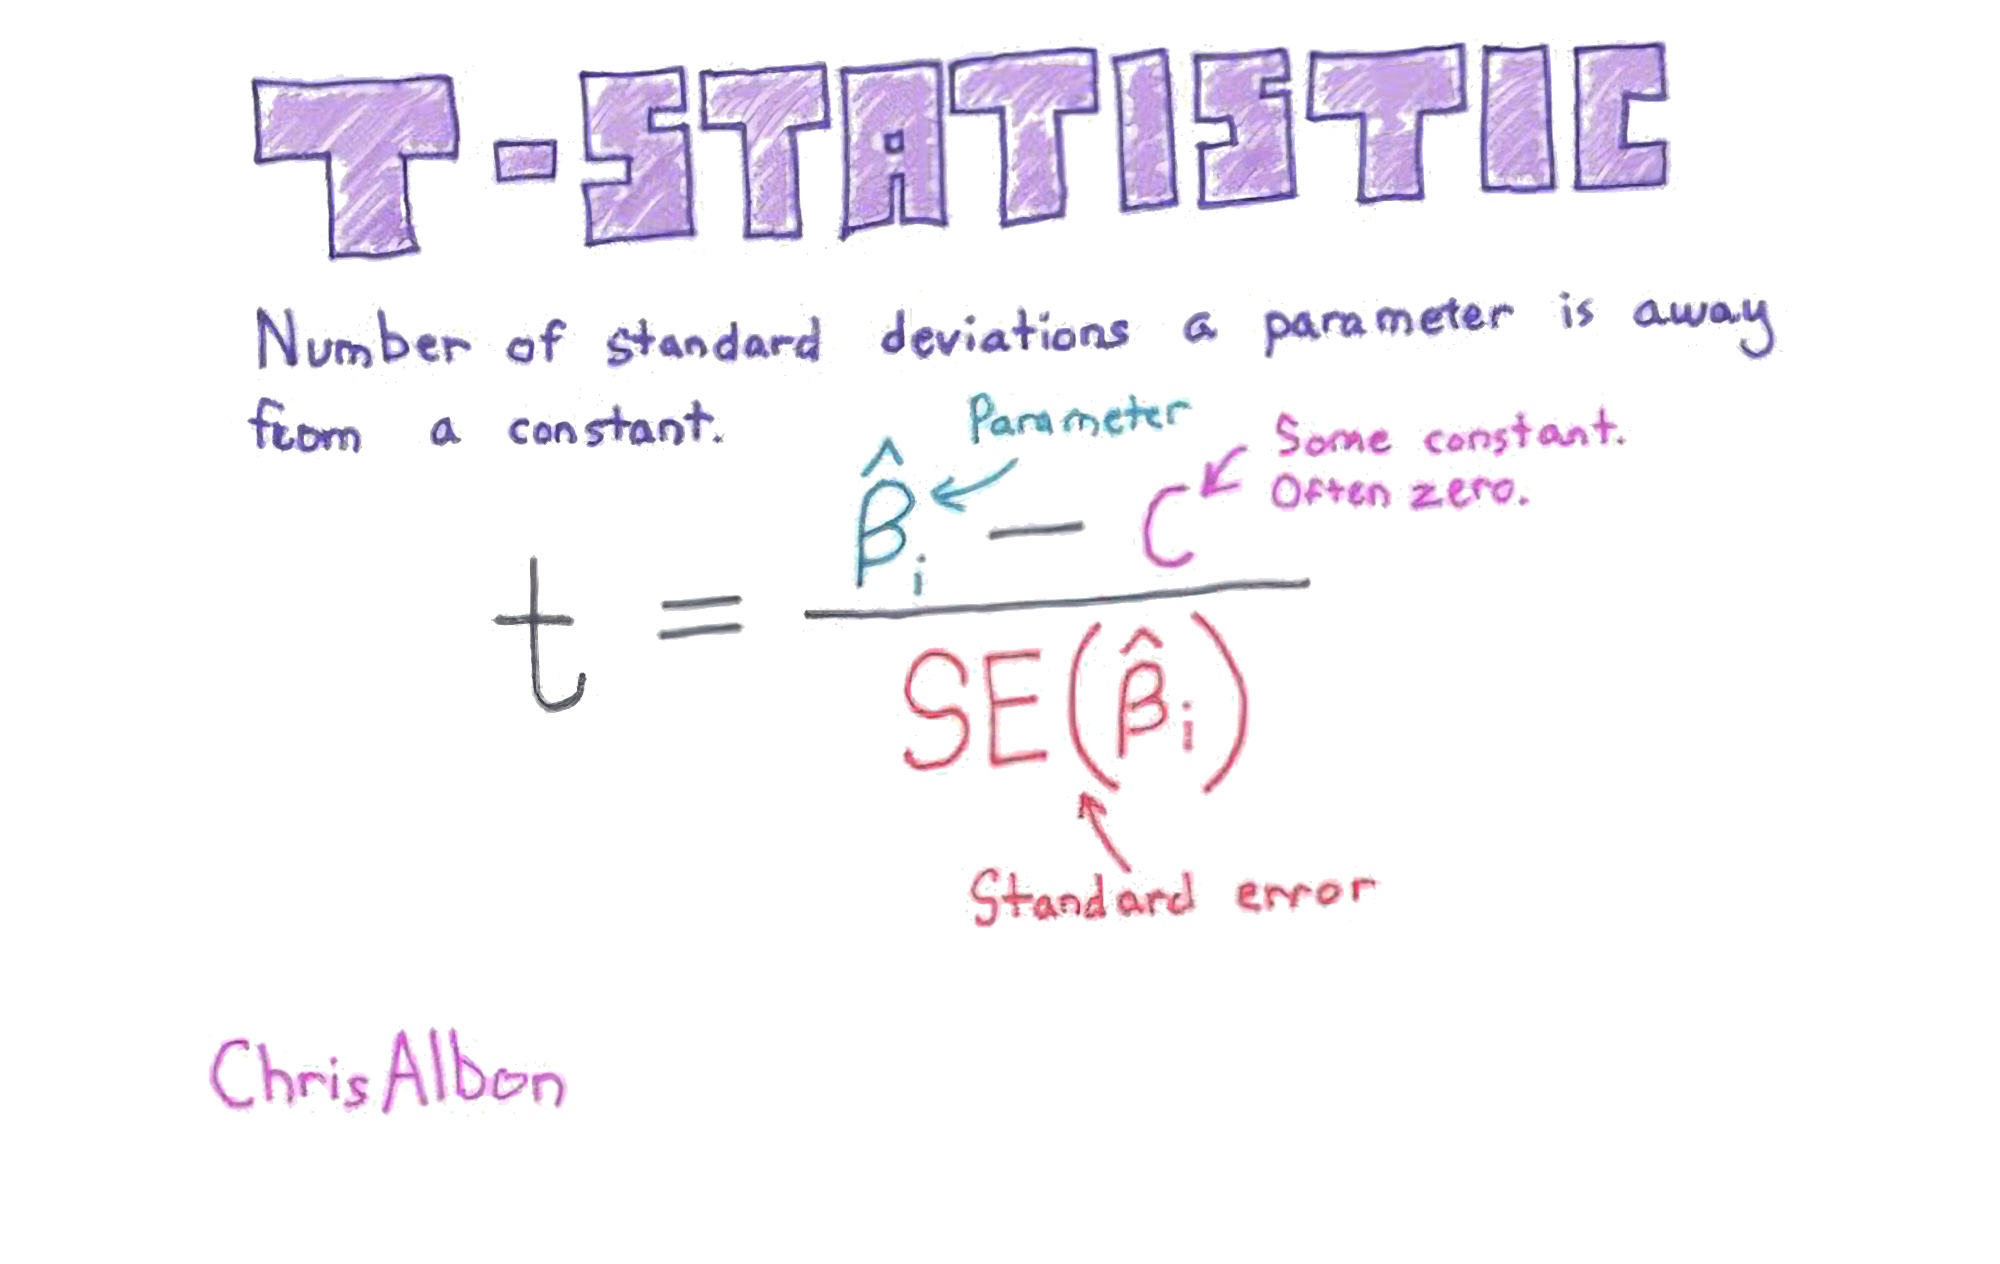 T-STATISTIC
Number of standard deviations a parameter is away
from a constant.
Parameter
Some constant.
Often zero.
t = β̂i − C / SE(β̂i)
Standard error
ChrisAlbon